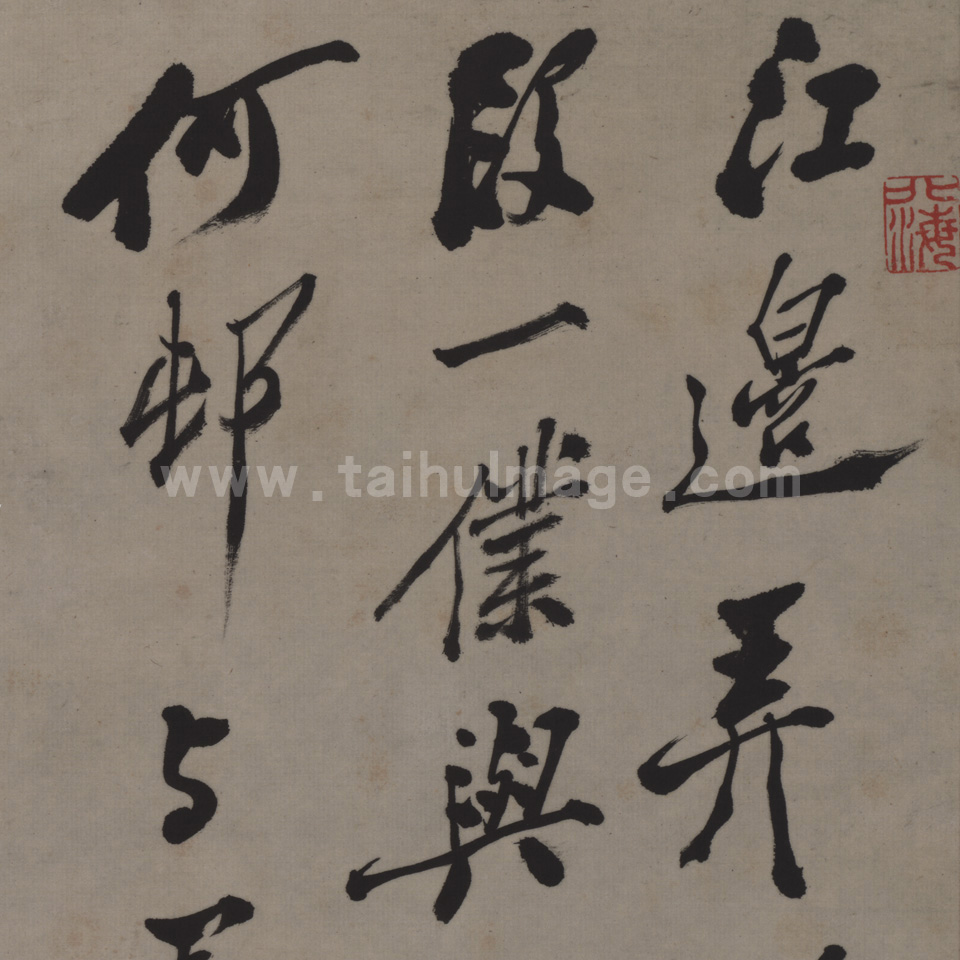 江邊弄
一僕與
何邨与
www.taihuImage.com